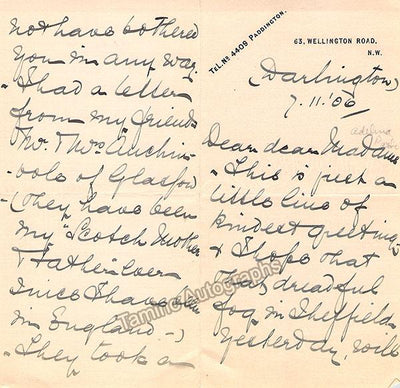 TEL. NO 4409 PADDINGTON.
63, WELLINGTON ROAD,
N.W.
(Darlington)
7.11.'06
adelina
Dear dear Madame
- This is just a
little line of
kindest greeting -
& I hope that
that dreadful
fog in Sheffield
yesterday, will
not have bothered
you in any way.
- I had a letter
from my friends
Mr. & Mrs Auchin-
vole of Glasgow
- (they have been
my "Scotch Mother
& Father" ever
since I have been
in England -)
- They took a
Tamino Autographs